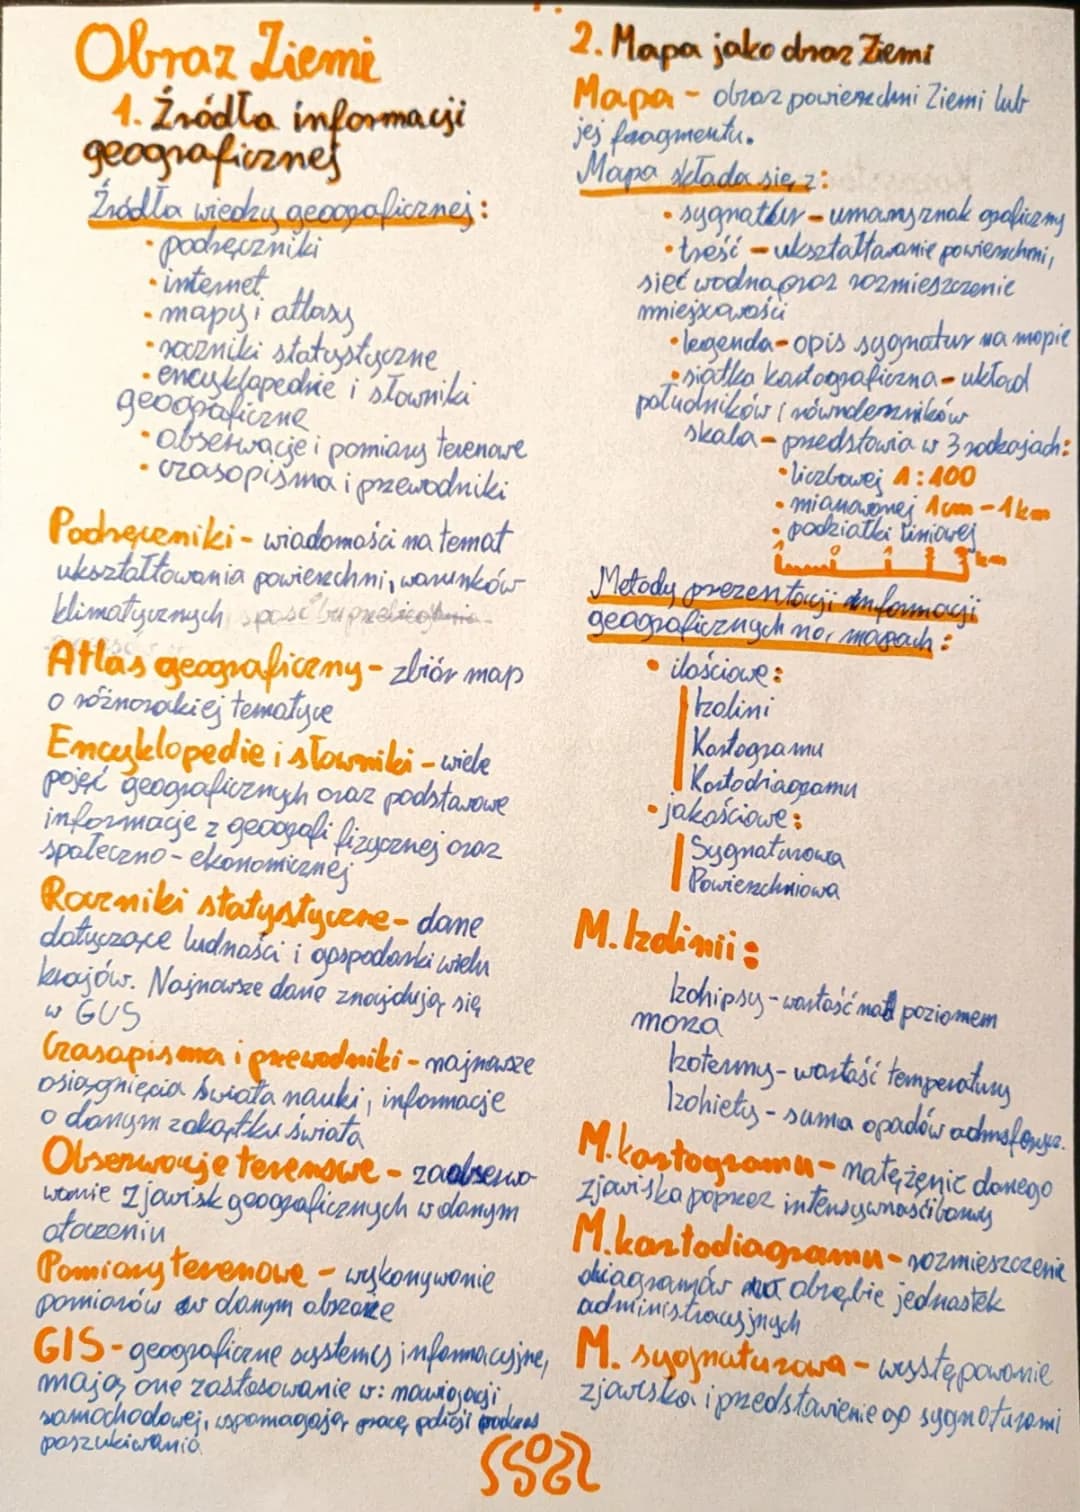 Obraz Ziemi
1. Źródła informacji
geograficznej
Źródła wiedzy geograficznej:
• podręczniki
• internet
• mapy i atlasy
• roczniki statystyczne
• encyklopednie i słowniki
geograficzne
• obserwacje i pomiary terenowe
• czasopisma i przewodniki
Podręczniki - wiadomości na temat
ukształtowania powierzchni, warunków
klimatycznych
Atlas geograficzny - zbiór map
o różnorakiej tematyce
Encyklopedie i słowniki - wiele
pojęć geograficznych oraz podstawowe
informacje z geografi fizycznej oraz
społeczno - ekonomicznej
Roczniki statystyczne - dane
dotyczące ludności i gospodarki wielu
krajów. Najnowsze dane znajdują się
w GUS
Czasopisma i przewodniki - najnowsze
osiągnięcia świata nauki, informacje
o danym zakątku świata
Obserwacje terenowe - zaobserwo-
wanie zjawisk geograficznych w danym
otoczeniu
Pomiary terenowe - wykonywanie
pomiarów w danym obszarze
GIS - geograficzne systemy informacyjne,
mają one zastosowanie w: nawigacji
samochodowej, wspomagają pracę policji podczas
poszukiwania
2. Mapa jako obraz Ziemi
Mapa - obraz powierzchni Ziemi lub
jej fragmentu.
Mapa składa się z:
• sygnatur - umowny znak graficzny
• treść - ukształtowanie powierzchni,
sieć wodna oraz rozmieszczenie
mniejscowości
• legenda - opis sygnatur na mapie
• siatka kartograficzna - układ
południków i równoleżników
skala - przedstawia w 3 rodzajach:
• liczbowej 1:100
• mianowanej 1cm - 1km
• podziałki liniowej
1 0 1 2 3 km
Metody prezentacji informacji
geograficznych na mapach:
• ilościowe:
Izolini
Kartogramu
Kartodiagramu
• jakościowe:
Sygnaturowa
Powierzchniowa
M. Izolinii:
Izohipsy - wartość nad poziomem
morza
Izotermy - wartość temperatury
Izohiety - suma opadów
M. kartogramu - natężenie danego
zjawiska poprzez intensywność barwy
M. kartodiagramu - rozmieszczenie
diagramów na obrębie jednostek
administracyjnych
M. sygnaturowa - występowanie
zjawiska i przedstawienie go sygnaturami